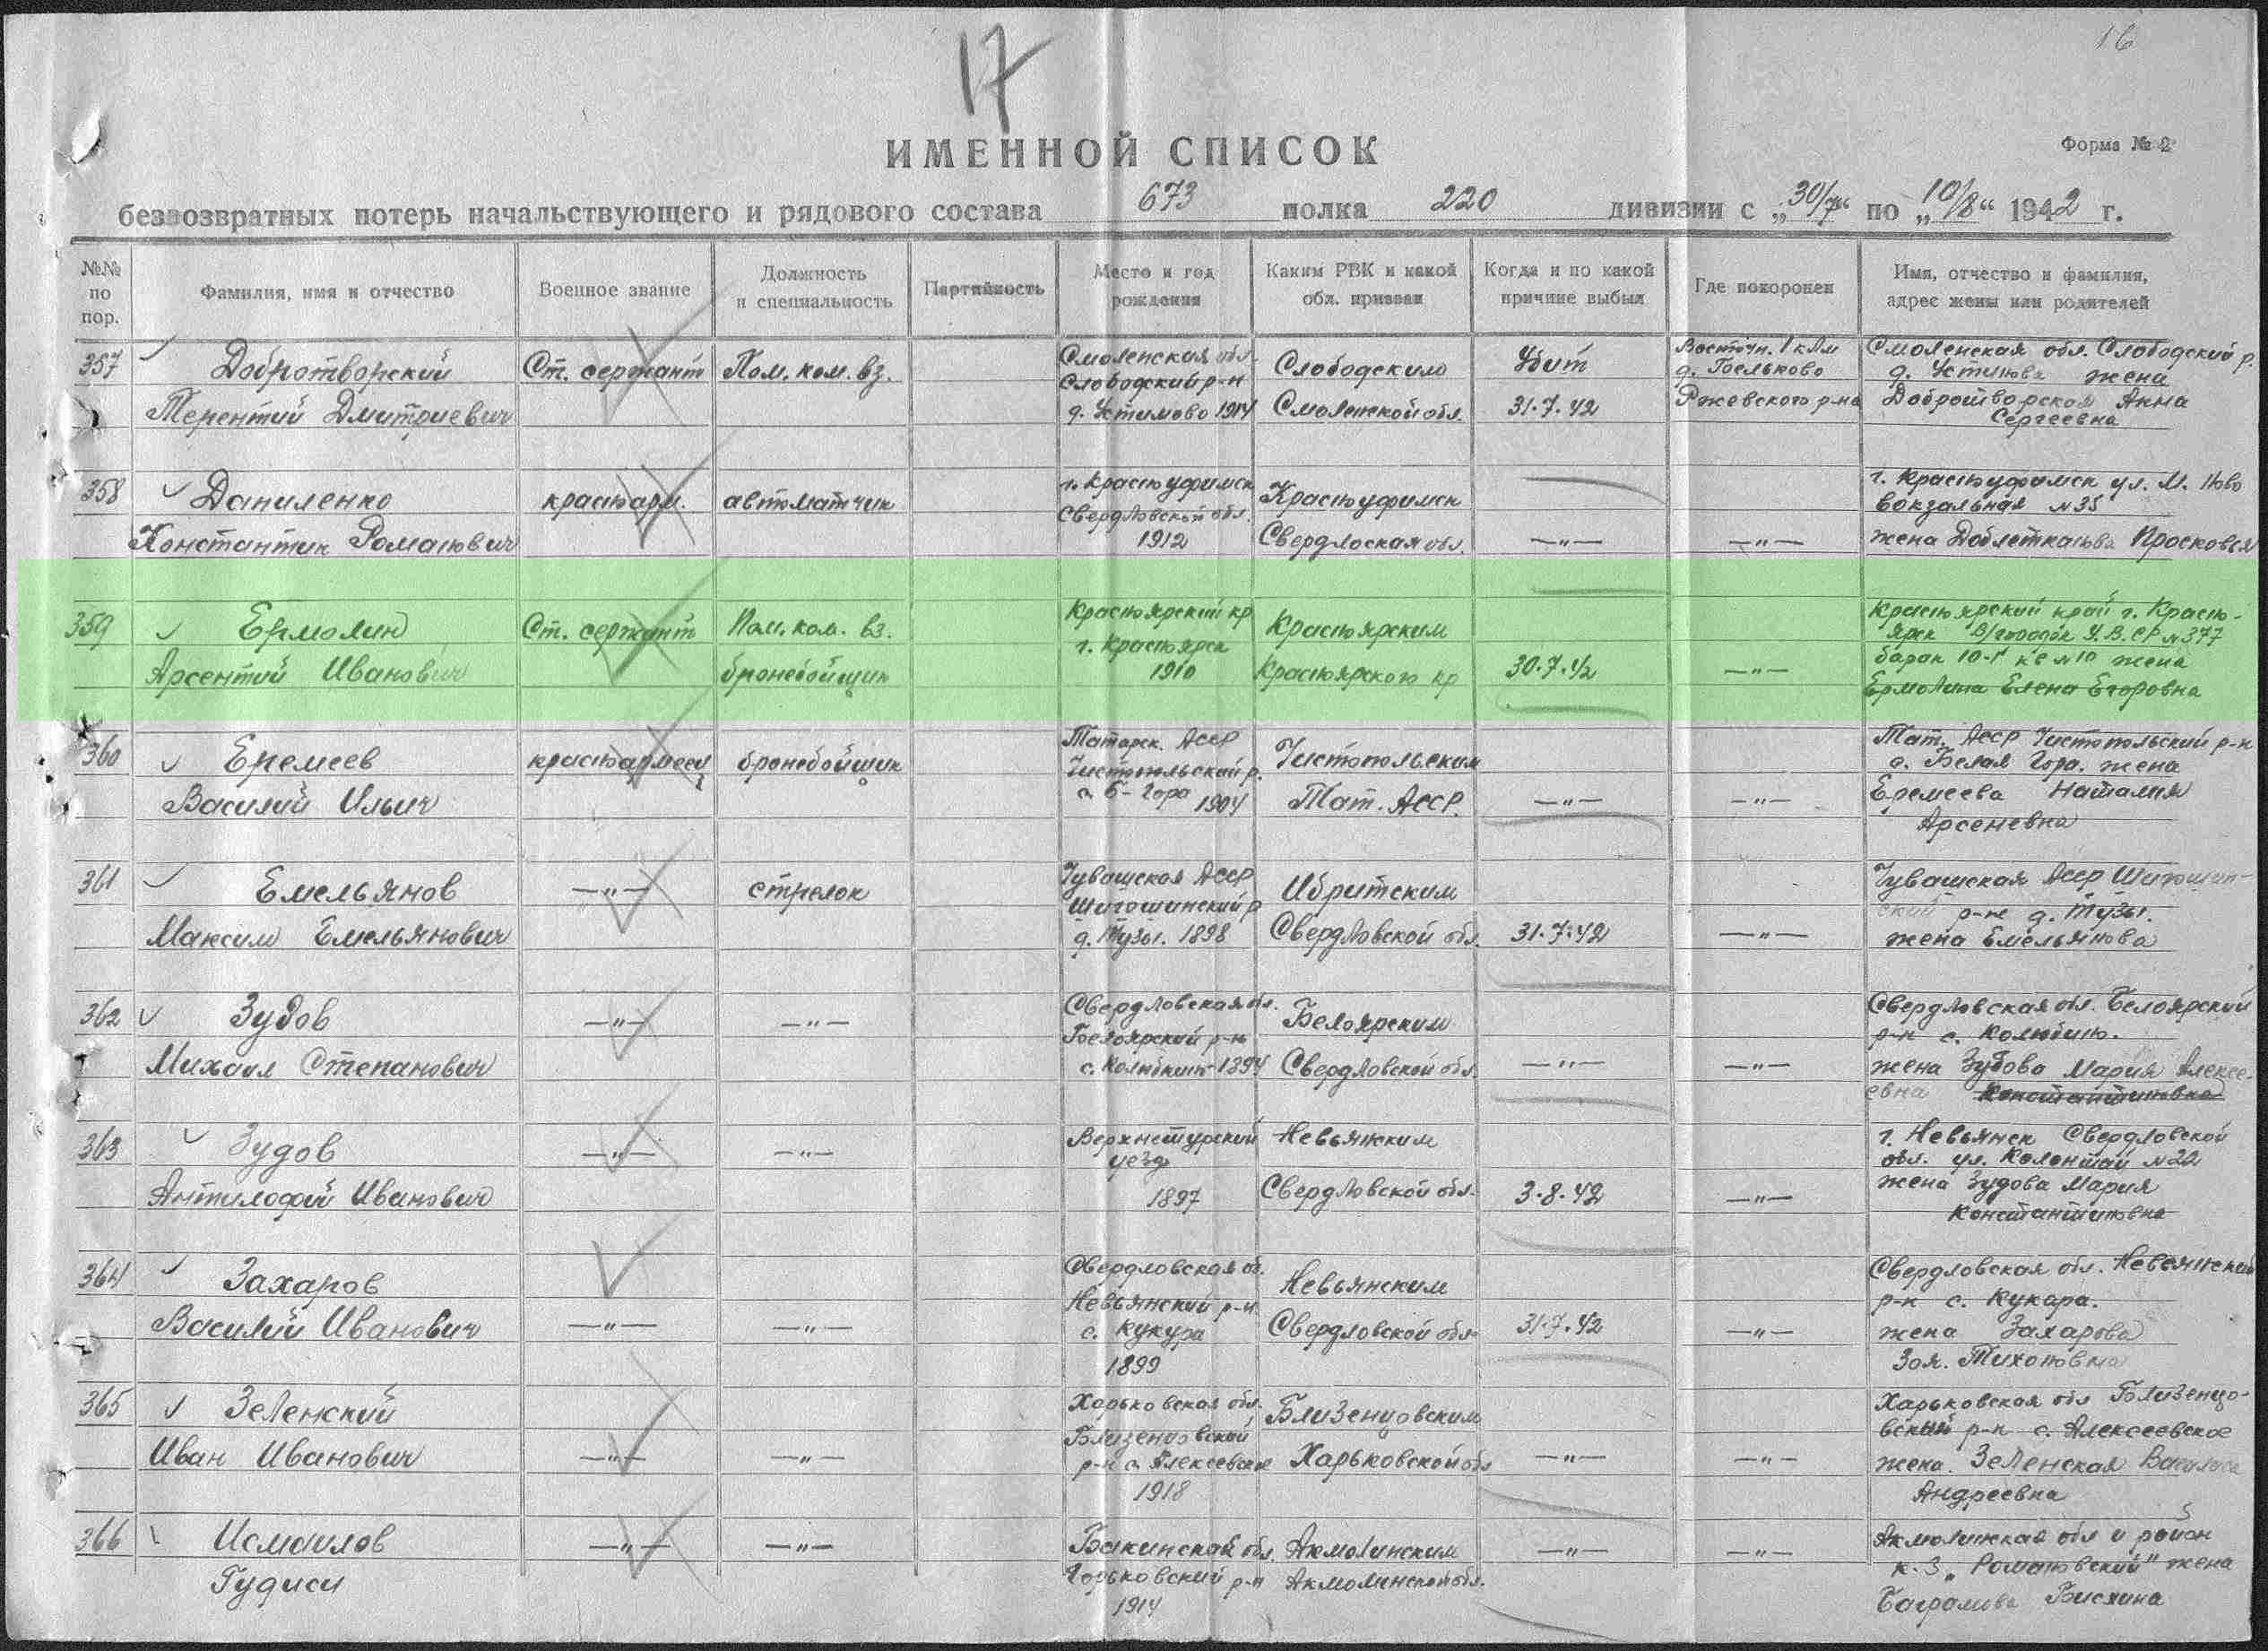 16
17
ИМЕННОЙ СПИСОК
Форма № 2
безвозвратных потерь начальствующего и рядового состава 673 полка 220 дивизии с „30/7“ по „10/8“ 1942 г.
№№ по пор.
Фамилия, имя и отчество
Военное звание
Должность и специальность
Партийность
Место и год рождения
Каким РВК и какой обл. призван
Когда и по какой причине выбыл
Где похоронен
Имя, отчество и фамилия, адрес жены или родителей
357
Добротворский
Терентий Дмитриевич
Ст. сержант
Пом. ком. вз.
Смоленская обл.
Слободский р-н
д. Устиново 1914
Слободским
Смоленской обл.
Убит
31.7.42
Восточн. 1 клм
д. Бельково
Ржевского р-на
Смоленская обл. Слободский р.
д. жена
Добротворская Анна
Сергеевна
358
Даниленко
Константин Романович
красноарм.
автоматчик
г. Красноуфимск
Свердловской обл.
1912
Красноуфимск
Свердлоская обл.
—"—
—"—
г. Красноуфимск ул. М. Ново
вокзальная №35
жена Просковья
359
Ермолин
Арсентий Иванович
Ст. сержант
Пом. ком. вз.
бронебойщик
Красноярский кр
г. Красноярск
1910
Красноярским
Красноярского кр
30.7.42
—"—
Красноярский край г. Красно-
ярск В/городок У.В.СР №377
барак 10-1 №10 жена
Ермолина Елена Егоровна
360
Еремеев
Василий Ильич
красноармеец
бронебойщик
Татарск. АССР
Чистопольский р.
с. Б-Гора 1904
Чистопольским
Тат. АССР.
—"—
—"—
Тат. АССР Чистопольский р-н
с. Белая Гора. жена
Еремеева Наталия
Арсеневна
361
Емельянов
Максим Емельянович
—"—
стрелок
Чувашская АССР
д. Тузы. 1898
Ибритским
Свердловской обл.
31.7.42
—"—
Чувашская АССР
р-не д. Тузы.
жена Емельянова
362
Зудов
Михаил Степанович
—"—
—"—
Свердловская обл.
Белоярский р-н
с. 1894
Белоярским
Свердловской обл.
—"—
—"—
Свердловская обл. Белоярский
р-н с.
жена Зудова Мария Алексе-
евна Константиновна
363
Зудов
Антилофий Иванович
—"—
—"—
Верхнетурский
уезд
1897
Невьянским
Свердловской обл.
3.8.42
—"—
г. Невьянск Свердловской
обл. ул. Колонтай №22
жена Зудова Мария
Константиновна
364
Захаров
Василий Иванович
—"—
—"—
Свердловская об.
Невьянский р-н
с. Кукура
1899
Невьянским
Свердловской обл.
31.7.42
—"—
Свердловская обл. Невьянский
р-н с. Кукара.
жена Захарова
Зоя. Тихоновна
365
Зеленский
Иван Иванович
—"—
—"—
Харьковская обл.
Близенцовский
р-н с. Алексевское
1918
Близенцовским
Харьковской обл
—"—
—"—
Харьковская обл Близенцо-
вский р-н с. Алексеевское
жена. Зеленская Василиса
Андреевна
366
Исмаилов
Гудиси
—"—
—"—
Бакинской обл.
Горьковский р-н
1914
Акмолинским
Акмолинской обл.
—"—
—"—
Акмолинская обл и район
к.з „Романовский" жена